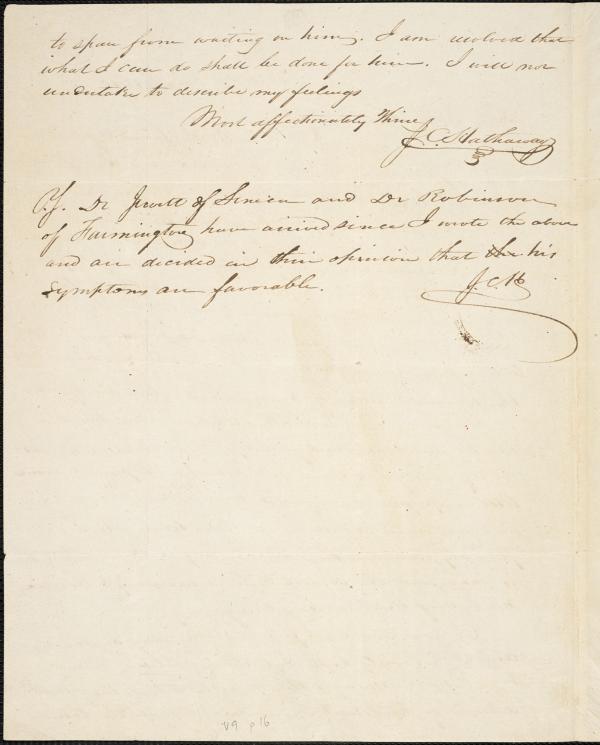 to spare from waiting on him. I am resolved that
what I can do shall be done for him. I will not
undertake to describe my feelings
Most affectionately Thine
J. C. Hathaway
Dr Jewett of Seneca and Dr Robinson
of Farmington have arrived since I wrote the above
and are decided in their opinion that the his
symptoms are favorable.
J. C. H
v9 p16